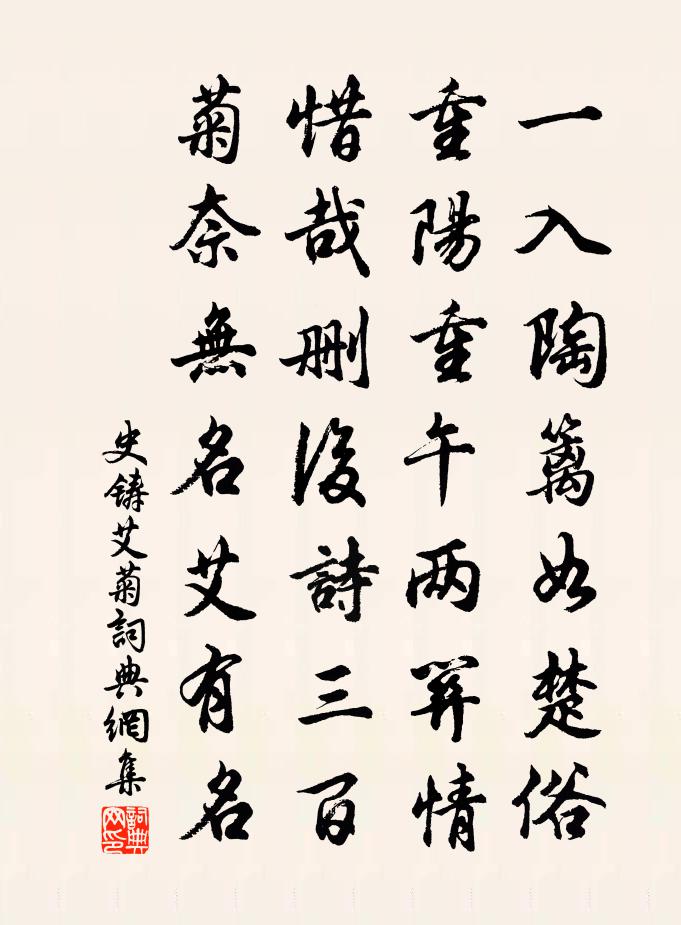 一入陶籬如楚俗
重陽重午两關情
惜哉刪後詩三百
菊奈無名艾有名
史鑄艾菊詞典網集
詞典網印